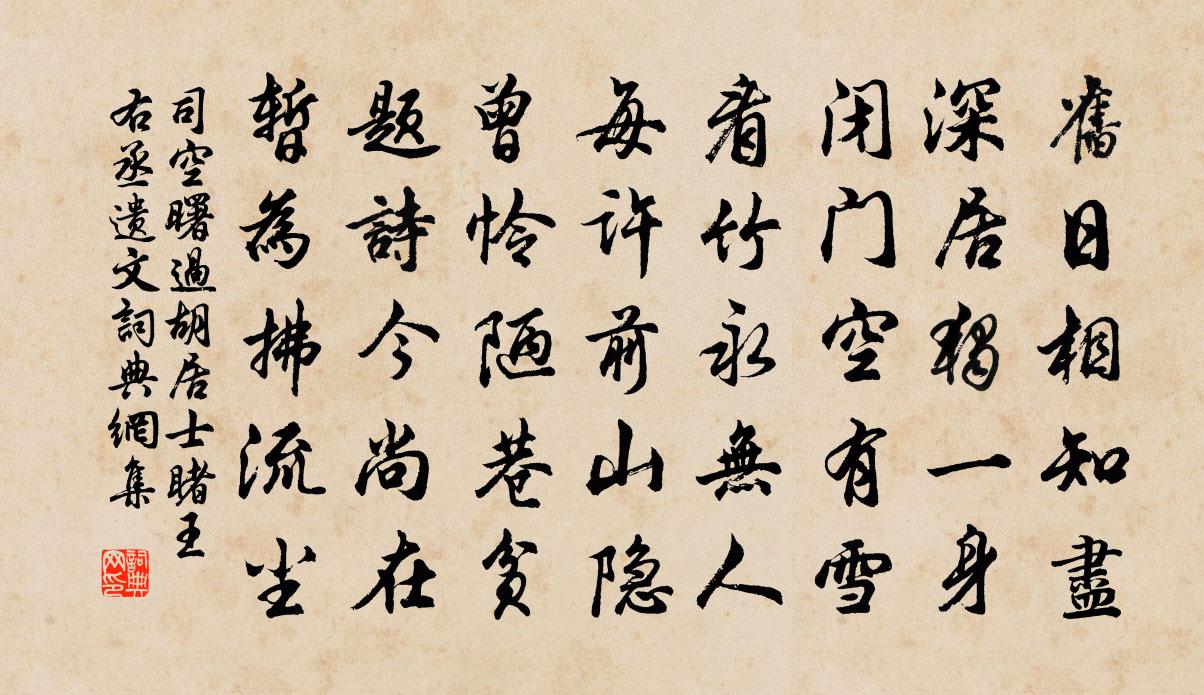 舊日相知盡
深居獨一身
闭门空有雪
看竹永無人
每许前山隐
曾怜陋巷贫
题詩今尚在
暫為拂流尘
司空曙過胡居士睹王
右丞遗文詞典網集
詞典网印